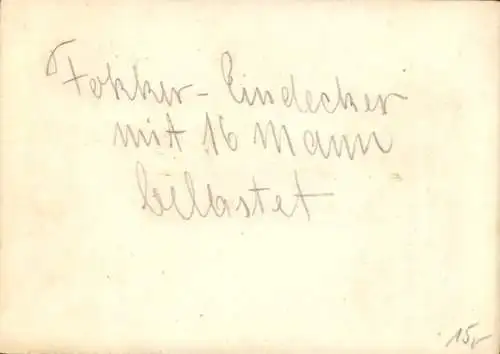 Fokker-Eindecker
mit 16 Mann
belastet
15,-